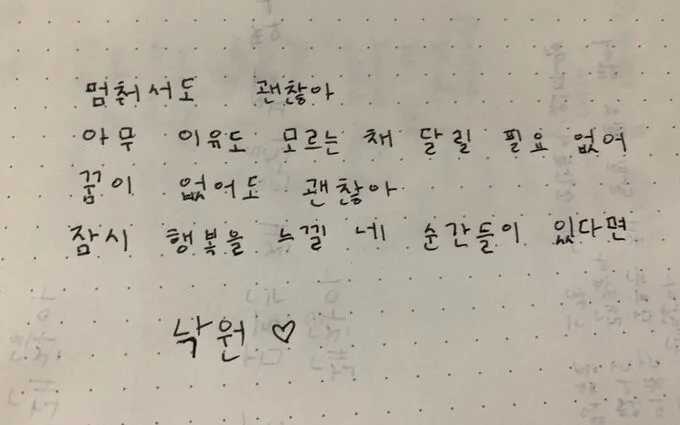 멈춰서도 괜찮아
아무 이유도 모르는 채 달릴 필요 없어
꿈이 없어도 괜찮아
잠시 행복을 느낄 네 순간들이 있다면
낙원 ♡